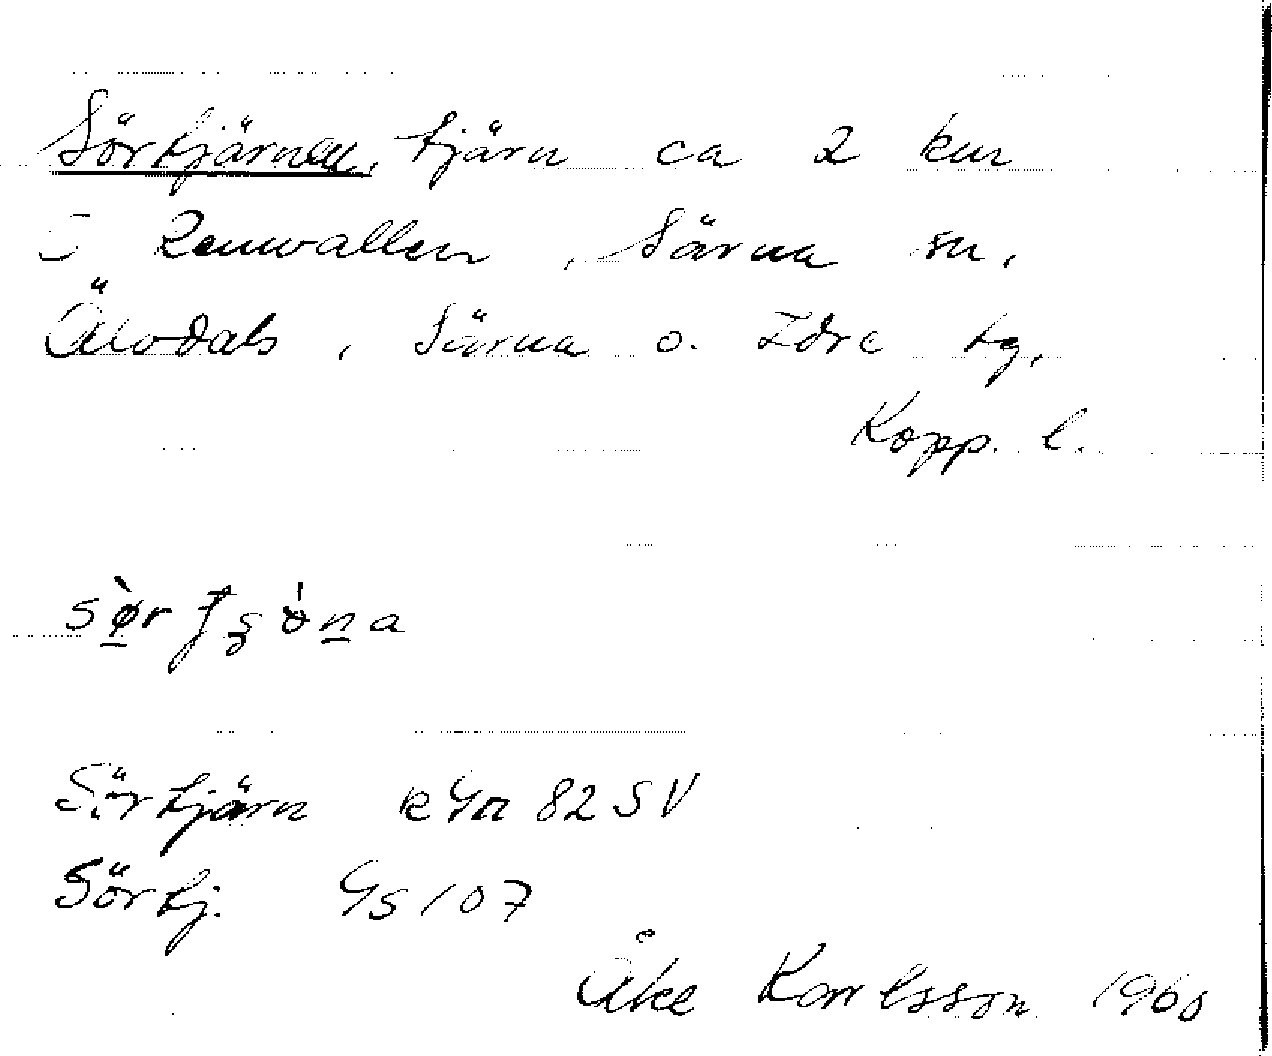 Sörtjärnen, tjärn ca 2 km
Renvallen, Särna sn,
Älvdals, Särna o. Idre tg,
Kopp. l.
Sörtjärn 82 SV
Sörtj. Gs 107
Åke Karlsson 1960